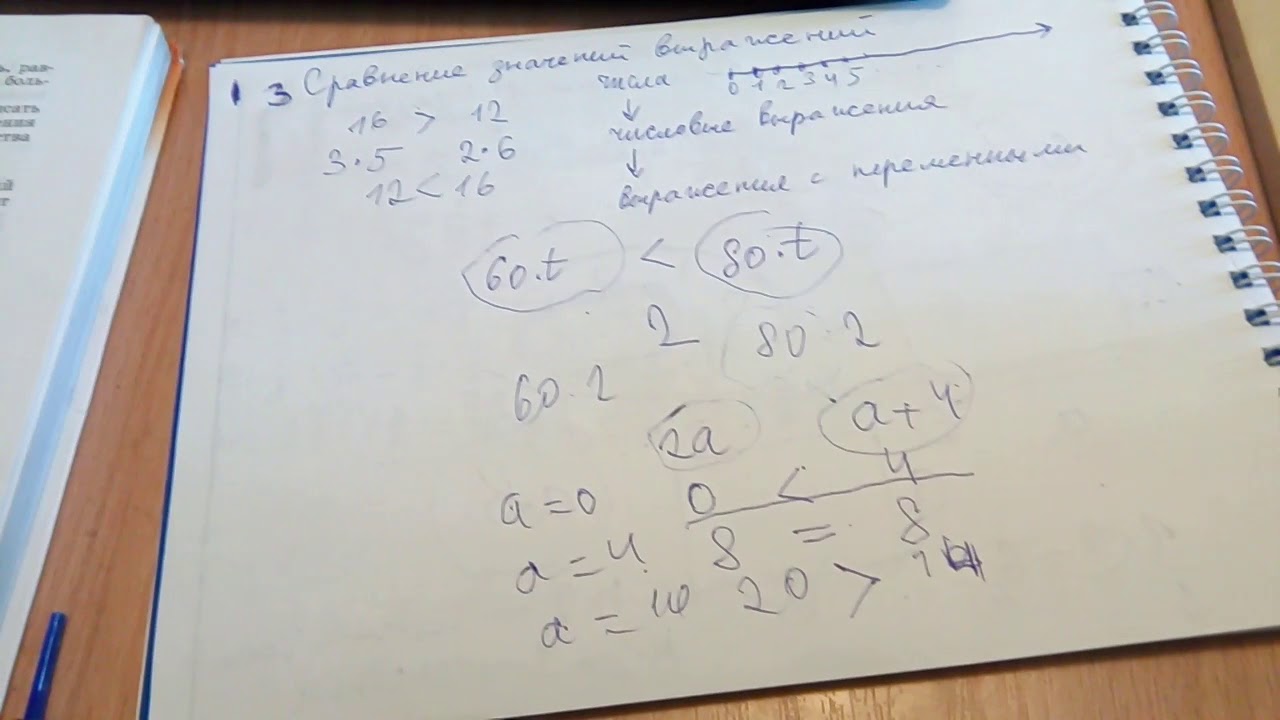 ь, рав-
боль-
исать
ения
ства
ий
т
1 3 Сравнение значений выражений
16 > 12
3·5 2·6
12 < 16
числа
0 1 2 3 4 5
↓
числовые выражения
↓
выражения с переменными
60·t < 80·t
2 80·2
60·2
2a a+4
a=0 0 < 4
a=4 8 = 8
a=10 20 >